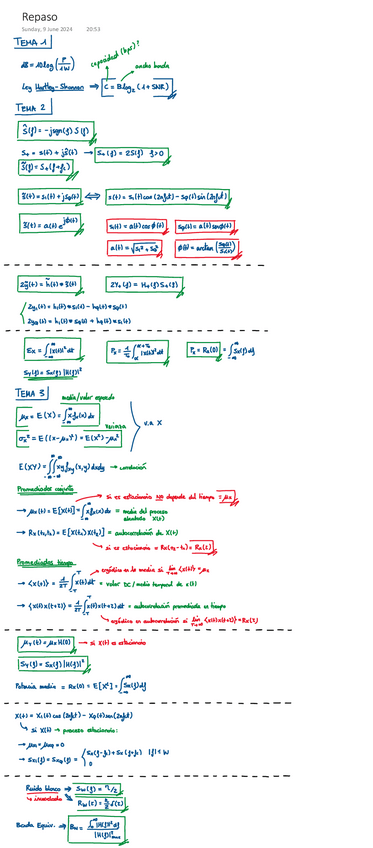 Repaso
Sunday, 9 June 2024 20:53
TEMA 1
dB = 10log(P/1W)
capacidad (bps)?
ancho banda
Ley Hartley-Shannon ⇒ C = B log₂ (1 + SNR)
TEMA 2
Ŝ(f) = -j sgn(f) S(f)
S₊ = s(t) + jŝ(t) → S₊(f) = 2S(f) f>0
S̃(f) = S₊(f+fc)
s̃(t) = s_I(t) + js_Q(t) ⟺ s(t) = s_I(t) cos(2πfct) - s_Q(t) sin(2πfct)
s̃(t) = a(t) e^{jϕ(t)}
s_I(t) = a(t) cos ϕ(t)
s_Q(t) = a(t) sin ϕ(t)
a(t) = √(s_I² + s_Q²)
ϕ(t) = arctan (s_Q(t)/s_I(t))
2ỹ(t) = h̃(t) * s̃(t)
2Y₊(f) = H₊(f) S₊(f)
2y_I(t) = h_I(t) * s_I(t) - h_Q(t) * s_Q(t)
2y_Q(t) = h_I(t) * s_Q(t) + h_Q(t) * s_I(t)
Ex = ∫_{-∞}^{∞} |x(t)|² dt
Px = 1/T₀ ∫_{α}^{α+T₀} |x(t)|² dt
Px = Rx(0) = ∫_{-∞}^{∞} Sx(f) df
Sy(f) = Sx(f) |H(f)|²
TEMA 3
media/valor esperado
μx = E(X) = ∫_{-∞}^{∞} x fx(x) dx
varianza
v.a X
σx² = E((X-μx)²) = E(X²) - μx²
E(XY) = ∫∫ xy fxy (x,y) dxdy → correlación
Promediados conjunto
si es estacionario NO depende del tiempo = μx
→ μx(t) = E[X(t)] = ∫_{-∞}^{∞} x fx(x) dx = media del proceso
aleatorio X(t)
→ Rx(t₁,t₂) = E[X(t₁) X(t₂)] = autocorrelación de X(t)
si es estacionario = Rx(t₂-t₁) = Rx(τ)
Promediados tiempo
ergódico en la media si lim_{T→∞} <x(t)> = μx
→ <x(t)> = 1/2T ∫_{-T}^{T} x(t) dt = valor DC/medio temporal de x(t)
→ <x(t) x(t+τ)> = 1/2T ∫_{-T}^{T} x(t) x(t+τ) dt = autocorrelación promediada en tiempo
ergódico en autocorrelación si lim_{T→∞} <x(t)x(t+τ)> = Rx(τ)
μy(t) = μx H(0) → si X(t) es estacionario
Sy(f) = Sx(f) |H(f)|²
Potencia media = Rx(0) = E[X²] = ∫_{-∞}^{∞} Sx(f) df
X(t) = X_I(t) cos (2πfct) - X_Q(t) sen(2πfct)
si X(t) → proceso estacionario:
→ μ_{XI} = μ_{XQ} = 0
→ S_{XI}(f) = S_{XQ}(f) = { Sx(f-fc) + Sx(f+fc) |f| ≤ W
0
Ruido blanco → Sw(f) = η/2
incorrelado
Rw(τ) = η/2 δ(τ)
Banda Equiv. → B_N = ∫₀^{∞} |H(f)|² df / |H(f)|²max